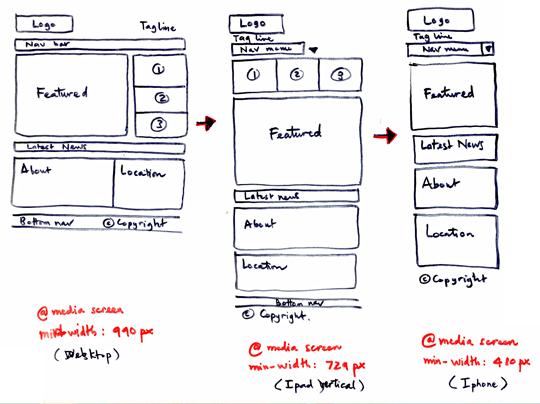 Logo
Tagline
Nav bar
Featured
1
2
3
Latest News
About
Location
Bottom nav
© Copyright
@media screen
min-width: 990 px
(Desktop)
Logo
Tag line
Nav menu
1
2
3
Featured
Latest news
About
Location
Bottom nav
© Copyright.
@media screen
min-width: 729 px
(Ipad vertical)
Logo
Tag line
Nav menu
Featured
Latest News
About
Location
© Copyright
@media screen
min-width: 480 px
(Iphone)